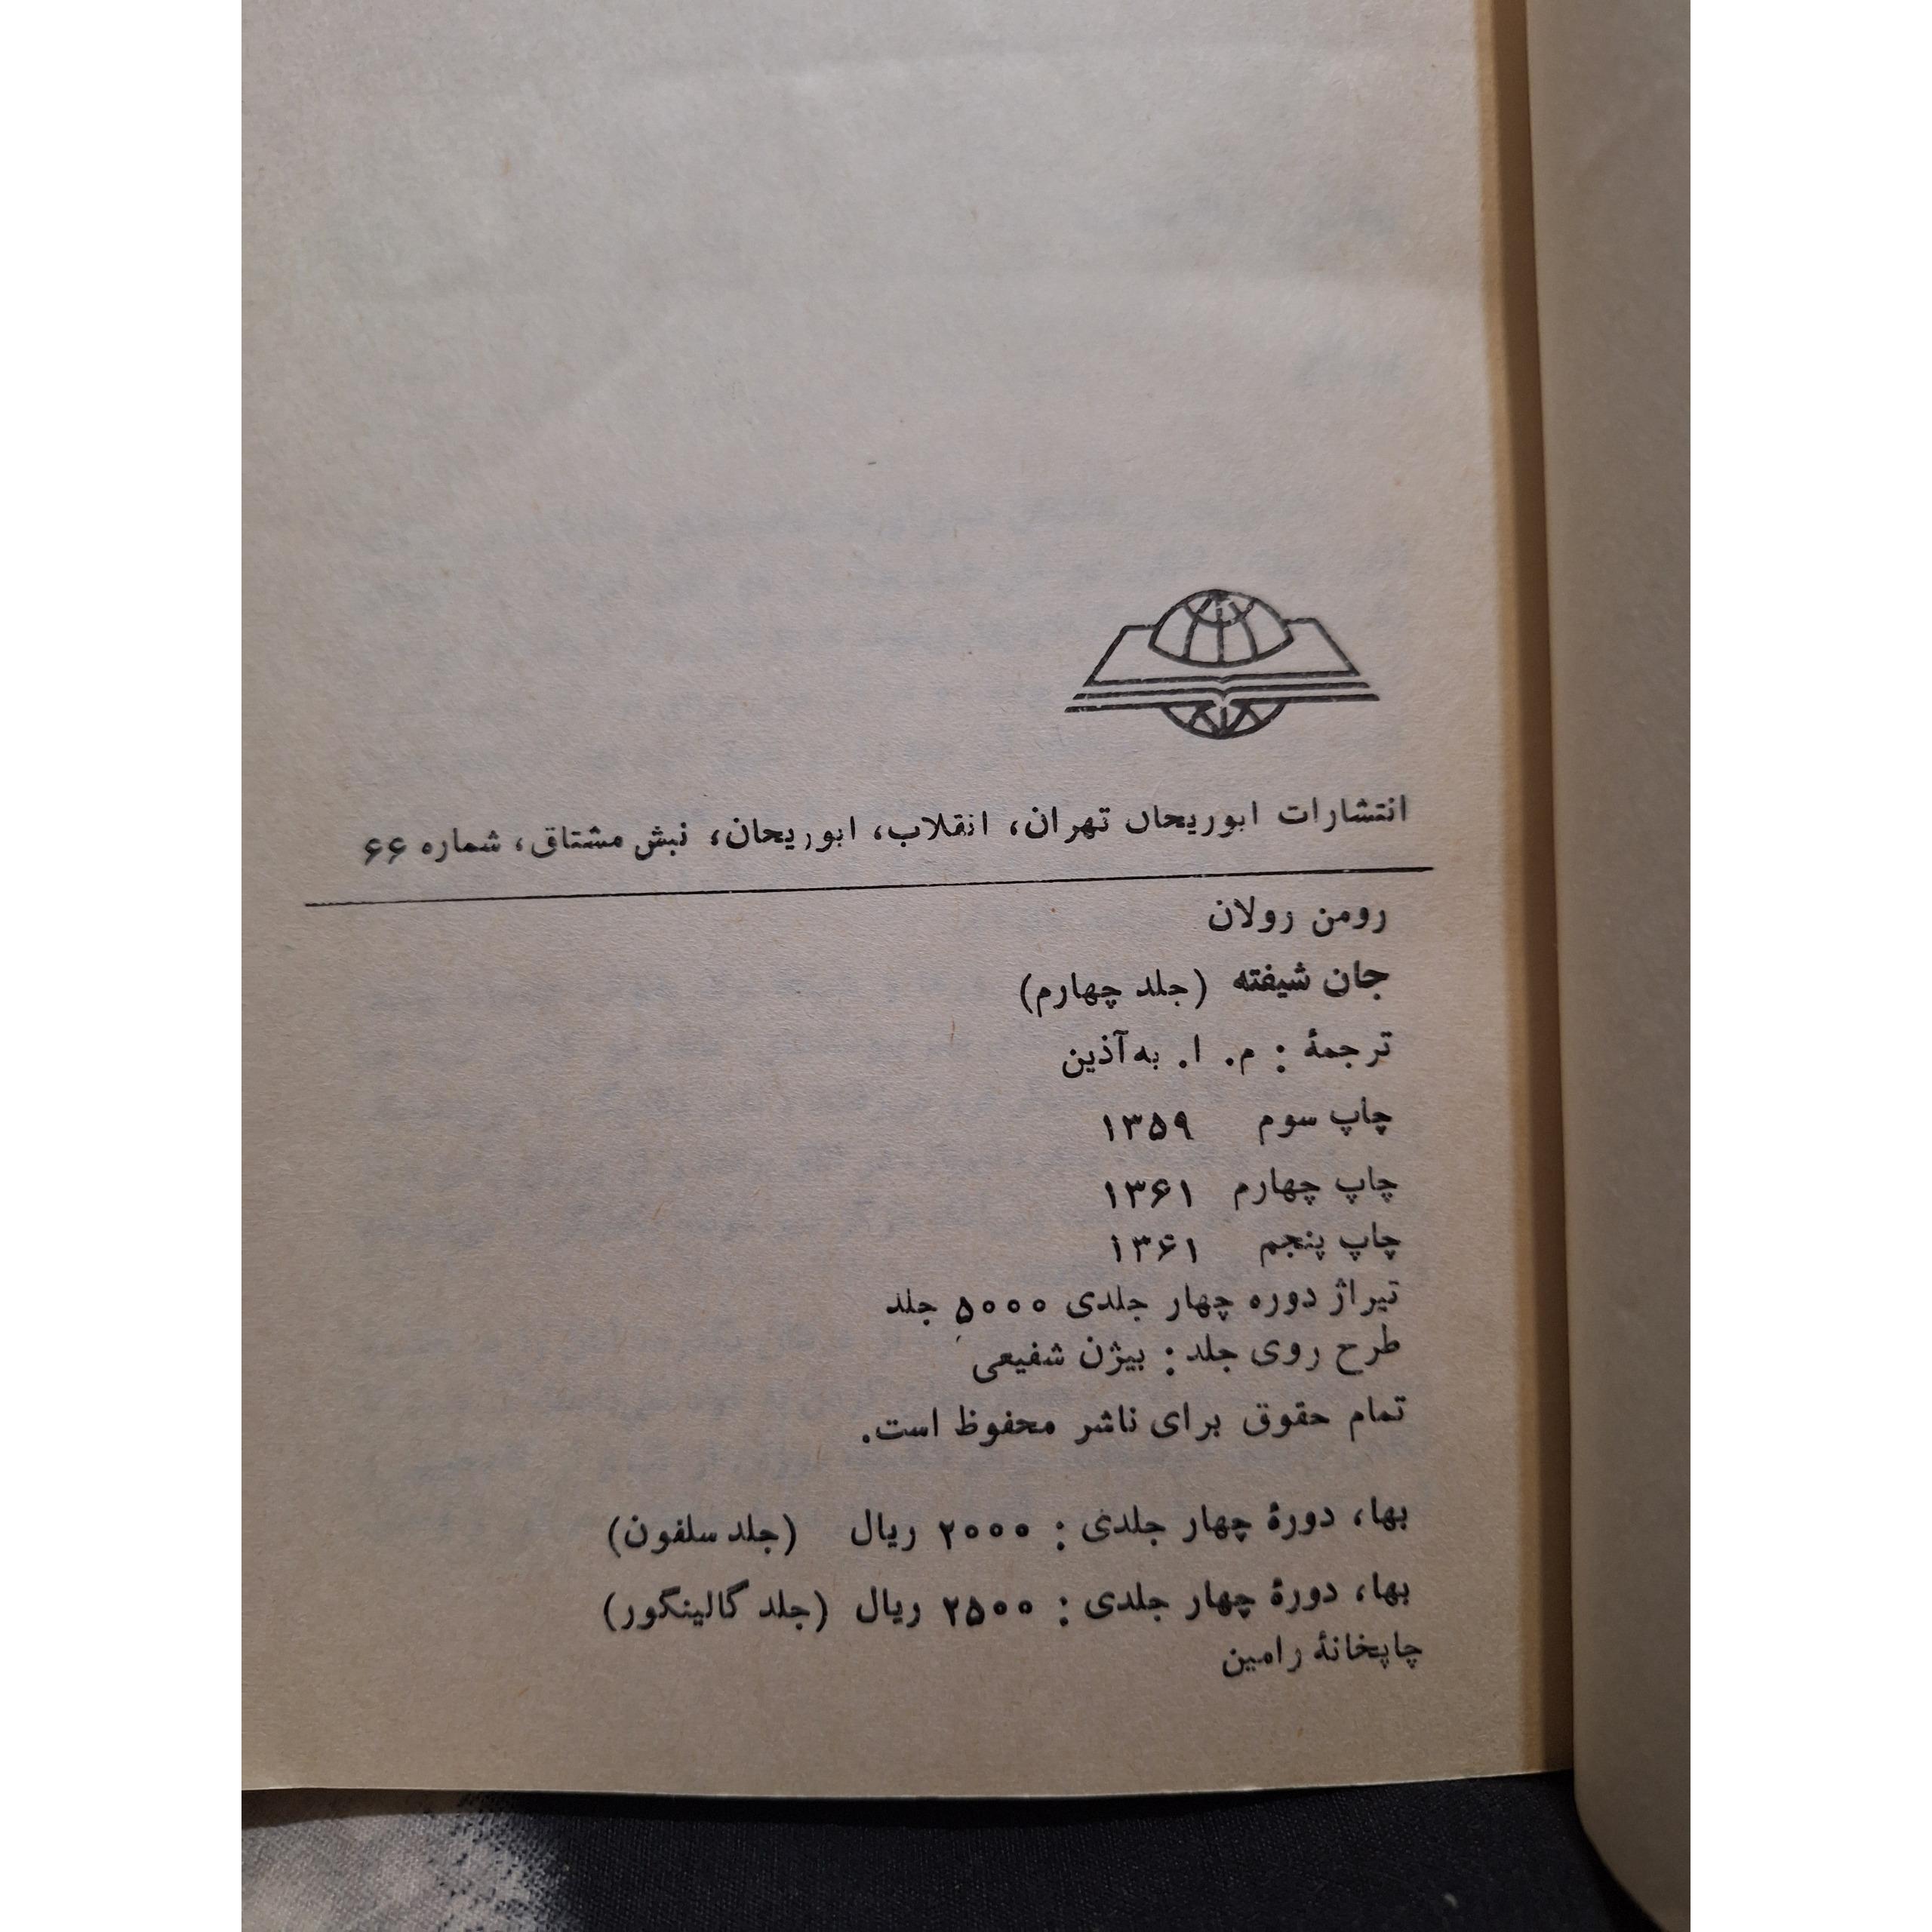 انتشارات ابوریحان تهران، انقلاب، ابوریحان، نبش مشتاق، شماره ۶۶
رومن رولان
جان شیفته (جلد چهارم)
ترجمهٔ : م. ا. به‌آذین
چاپ سوم ۱۳۵۹
چاپ چهارم ۱۳۶۱
چاپ پنجم ۱۳۶۱
تیراژ دوره چهار جلدی ۵۰۰۰ جلد
طرح روی جلد: بیژن شفیعی
تمام حقوق برای ناشر محفوظ است.
بها، دورهٔ چهار جلدی: ۲۰۰۰ ریال (جلد سلفون)
بها، دورهٔ چهار جلدی: ۲۵۰۰ ریال (جلد گالینگور)
چاپخانهٔ رامین